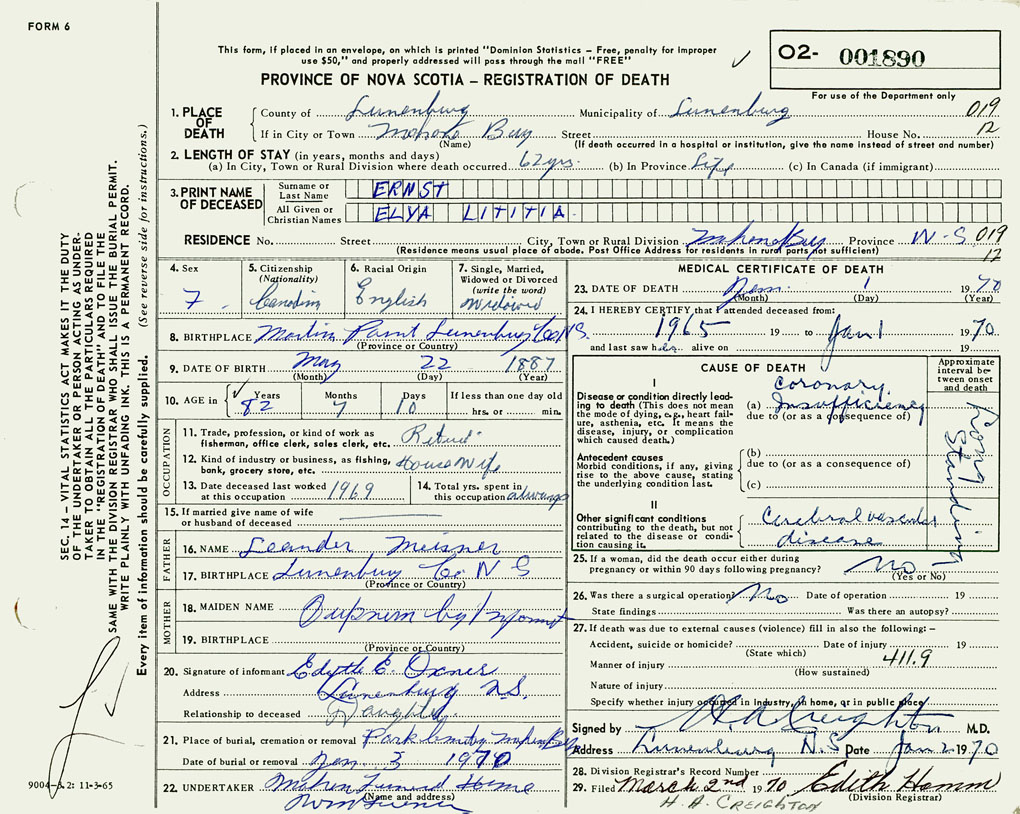 FORM 6
This form, if placed in an envelope, on which is printed "Dominion Statistics – Free, penalty for improper
use $50," and properly addressed will pass through the mail "FREE"
PROVINCE OF NOVA SCOTIA – REGISTRATION OF DEATH
O2- 001890
For use of the Department only
1. PLACE OF DEATH
County of Lunenburg Municipality of Lunenburg 019
If in City or Town Mahone Bay Street House No. 12
(Name) (If death occurred in a hospital or institution, give the name instead of street and number)
2. LENGTH OF STAY (in years, months and days)
(a) In City, Town or Rural Division where death occurred 62 yrs. (b) In Province Life (c) In Canada (if immigrant)
3. PRINT NAME OF DECEASED
Surname or Last Name ERNST
All Given or Christian Names ELVA LITITIA
RESIDENCE No. Street City, Town or Rural Division Mahone Bay Province N-S 019
(Residence means usual place of abode. Post Office Address for residents in rural parts not sufficient) 12
4. Sex
F
5. Citizenship (Nationality)
Canadian
6. Racial Origin
English
7. Single, Married, Widowed or Divorced (write the word)
Widowed
8. BIRTHPLACE Martins Point Lunenburg Co. N.S.
(Province or Country)
9. DATE OF BIRTH May 22 1887
(Month) (Day) (Year)
10. AGE in Years Months Days If less than one day old
82 7 10 hrs. or min.
OCCUPATION
11. Trade, profession, or kind of work as fisherman, office clerk, sales clerk, etc. Retired
12. Kind of industry or business, as fishing, bank, grocery store, etc. Housewife
13. Date deceased last worked at this occupation 1969
14. Total yrs. spent in this occupation always
15. If married give name of wife or husband of deceased
FATHER
16. NAME Leander Meisner
17. BIRTHPLACE Lunenburg Co. N S
(Province or Country)
MOTHER
18. MAIDEN NAME by Informant
19. BIRTHPLACE
(Province or Country)
20. Signature of informant Edyth E. Oxner
Address Lunenburg N.S.
Relationship to deceased Daughter
21. Place of burial, cremation or removal Park Cemetery Mahone Bay
Date of burial or removal Jan. 3 1970
22. UNDERTAKER Mahone Funeral Home
(Name and address)
MEDICAL CERTIFICATE OF DEATH
23. DATE OF DEATH Jan. 1 1970
(Month) (Day) (Year)
24. I HEREBY CERTIFY that I attended deceased from:
1965 19 to Jan 1 1970
and last saw her alive on 19
CAUSE OF DEATH
Approximate interval between onset and death
I
Disease or condition directly leading to death (This does not mean the mode of dying, e.g., heart failure, asthenia, etc. It means the disease, injury, or complication which caused death.)
(a) Coronary Insufficiency
due to (or as a consequence of)
Long Standing
Antecedent causes
Morbid conditions, if any, giving rise to the above cause, stating the underlying condition last.
(b)
due to (or as a consequence of)
(c)
II
Other significant conditions contributing to the death, but not related to the disease or condition causing it.
Cerebral vascular disease
25. If a woman, did the death occur either during pregnancy or within 90 days following pregnancy? No
(Yes or No)
26. Was there a surgical operation? No Date of operation 19
State findings Was there an autopsy?
27. If death was due to external causes (violence) fill in also the following: –
Accident, suicide or homicide? Date of injury 19
(State which) 411.9
Manner of injury
(How sustained)
Nature of injury
Specify whether injury occurred in industry, in home, or in public place
Signed by H A Creighton M.D.
Address Lunenburg N.S Date Jan 2 1970
28. Division Registrar's Record Number
29. Filed March 2nd 1970 Edith Hamm
(Division Registrar)
H. A. CREIGHTON
SEC. 14 – VITAL STATISTICS ACT MAKES IT THE DUTY
OF THE UNDERTAKER OR PERSON ACTING AS UNDER-
TAKER TO OBTAIN ALL THE PARTICULARS REQUIRED
IN THE "REGISTRATION OF DEATH" AND TO FILE THE
SAME WITH THE DIVISION REGISTRAR WHO SHALL ISSUE THE BURIAL PERMIT.
WRITE PLAINLY WITH UNFADING INK. THIS IS A PERMANENT RECORD.
Every item of information should be carefully supplied. (See reverse side for instructions.)
9004-3.2: 11-3-65